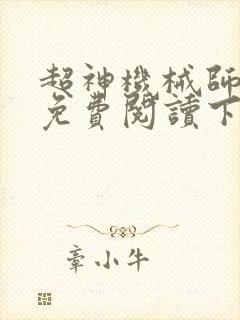 超神機械師
免費閱讀下
章小牛